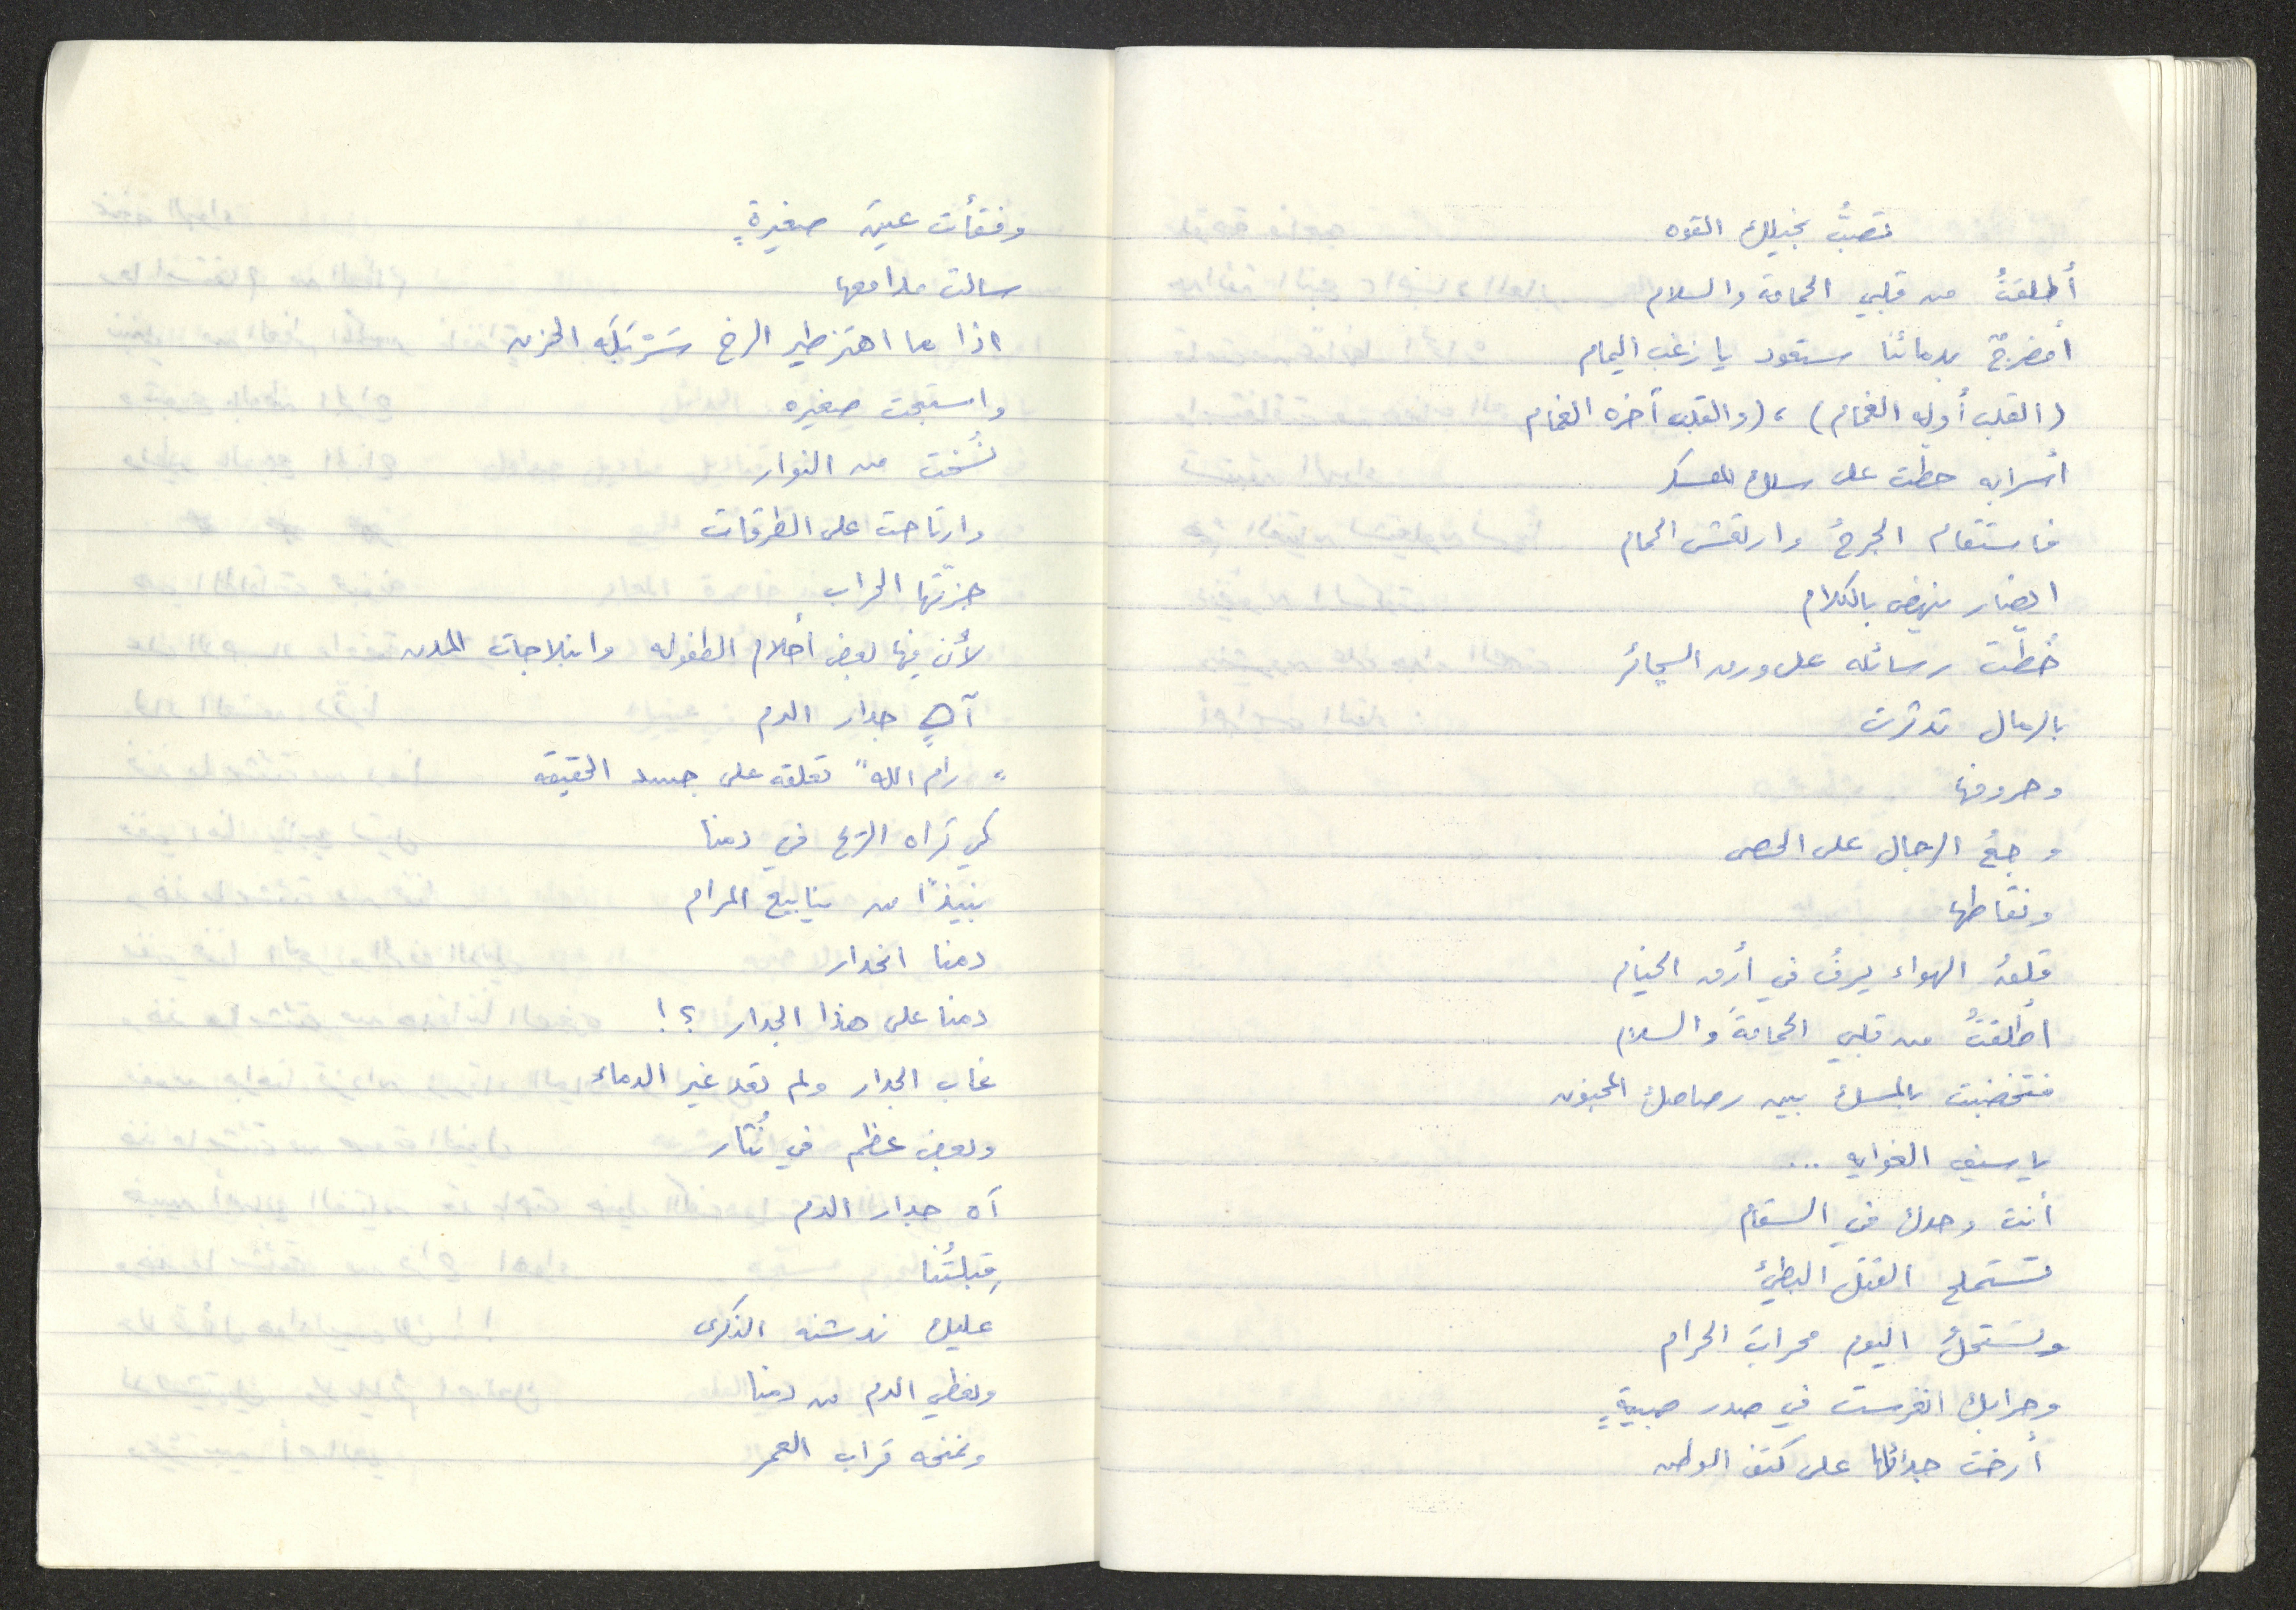 تصبُّ بخيلك القوه
أطلقتُ من قلبي الحمامة والسلام
أمضرجٌ بدمائنا ستعود يا زغب اليمام
(القلب أوله الغمام) ، (والقلب آخره الغمام
أسرابه حطت على سلك المعسكر
فاستقام الجرحُ وارتعش الحمام
انصار ينهض بالكلام
خطّت رسائله على ورق السجائر
بالرمال تدثرت
وحروفها
وجعُ الرجال على الحصى
ونقاطها
قلقُ الهواء يرفُ في أرق الخيام
أطلقتُ من قلبي الحمامةَ والسلام
فتخضبت بالمسك بين رصاصك المجنون
يا سيف الغوايه ...
أنت وحدك في السقام
تستملح القتل البطيئ
وتستحلُّ اليوم محرابَ الحرام
وحرابك انغرست في صدر صبيةٍ
أرخت جدائلها على كتف الوطن
وفقأت عين صغيرةٍ
سالت مدامعها
اذا ما اهتز طير الرخ سَتَرتَبِكَ الحزن
واستبحت صغيره
نُسخت من النوار
وارتاحت على الطرقات
جزتّها الحراب
لأن فيها بعض أحلام الطفوله وانبلاجات المدن
آهٍ جدار الدم
" رام الله " تعلقه على جسد الحقيقه
كي تراه الريح في دمنا
نبيذًا من ينابيع المرام
دمنا انحدار
دمنا على هذا الجدار ؟!
غاب الجدار ولم تعد غير الدماء
وبعض عظم في نُثار
آه جدار الدم
قِبلتُنا
عليك ندشنه الذكرى
ونعطي الدم من دمنا
ونمنحه قراب العمر